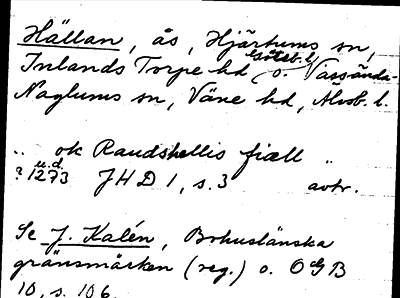 Hällan, ås, Hjärtums sn,
Inlands Torpe hd (Göteb. l.) o. Vassända-
Naglums sn, Väne hd, Älvsb. l.
„ ok Raudshellis fiæll „
? u.d. 1273 JHD 1, s. 3 avtr.
Se J. Kalén, Bohuslänska
gränsmärken (reg.) o. OGB
10, s. 106.